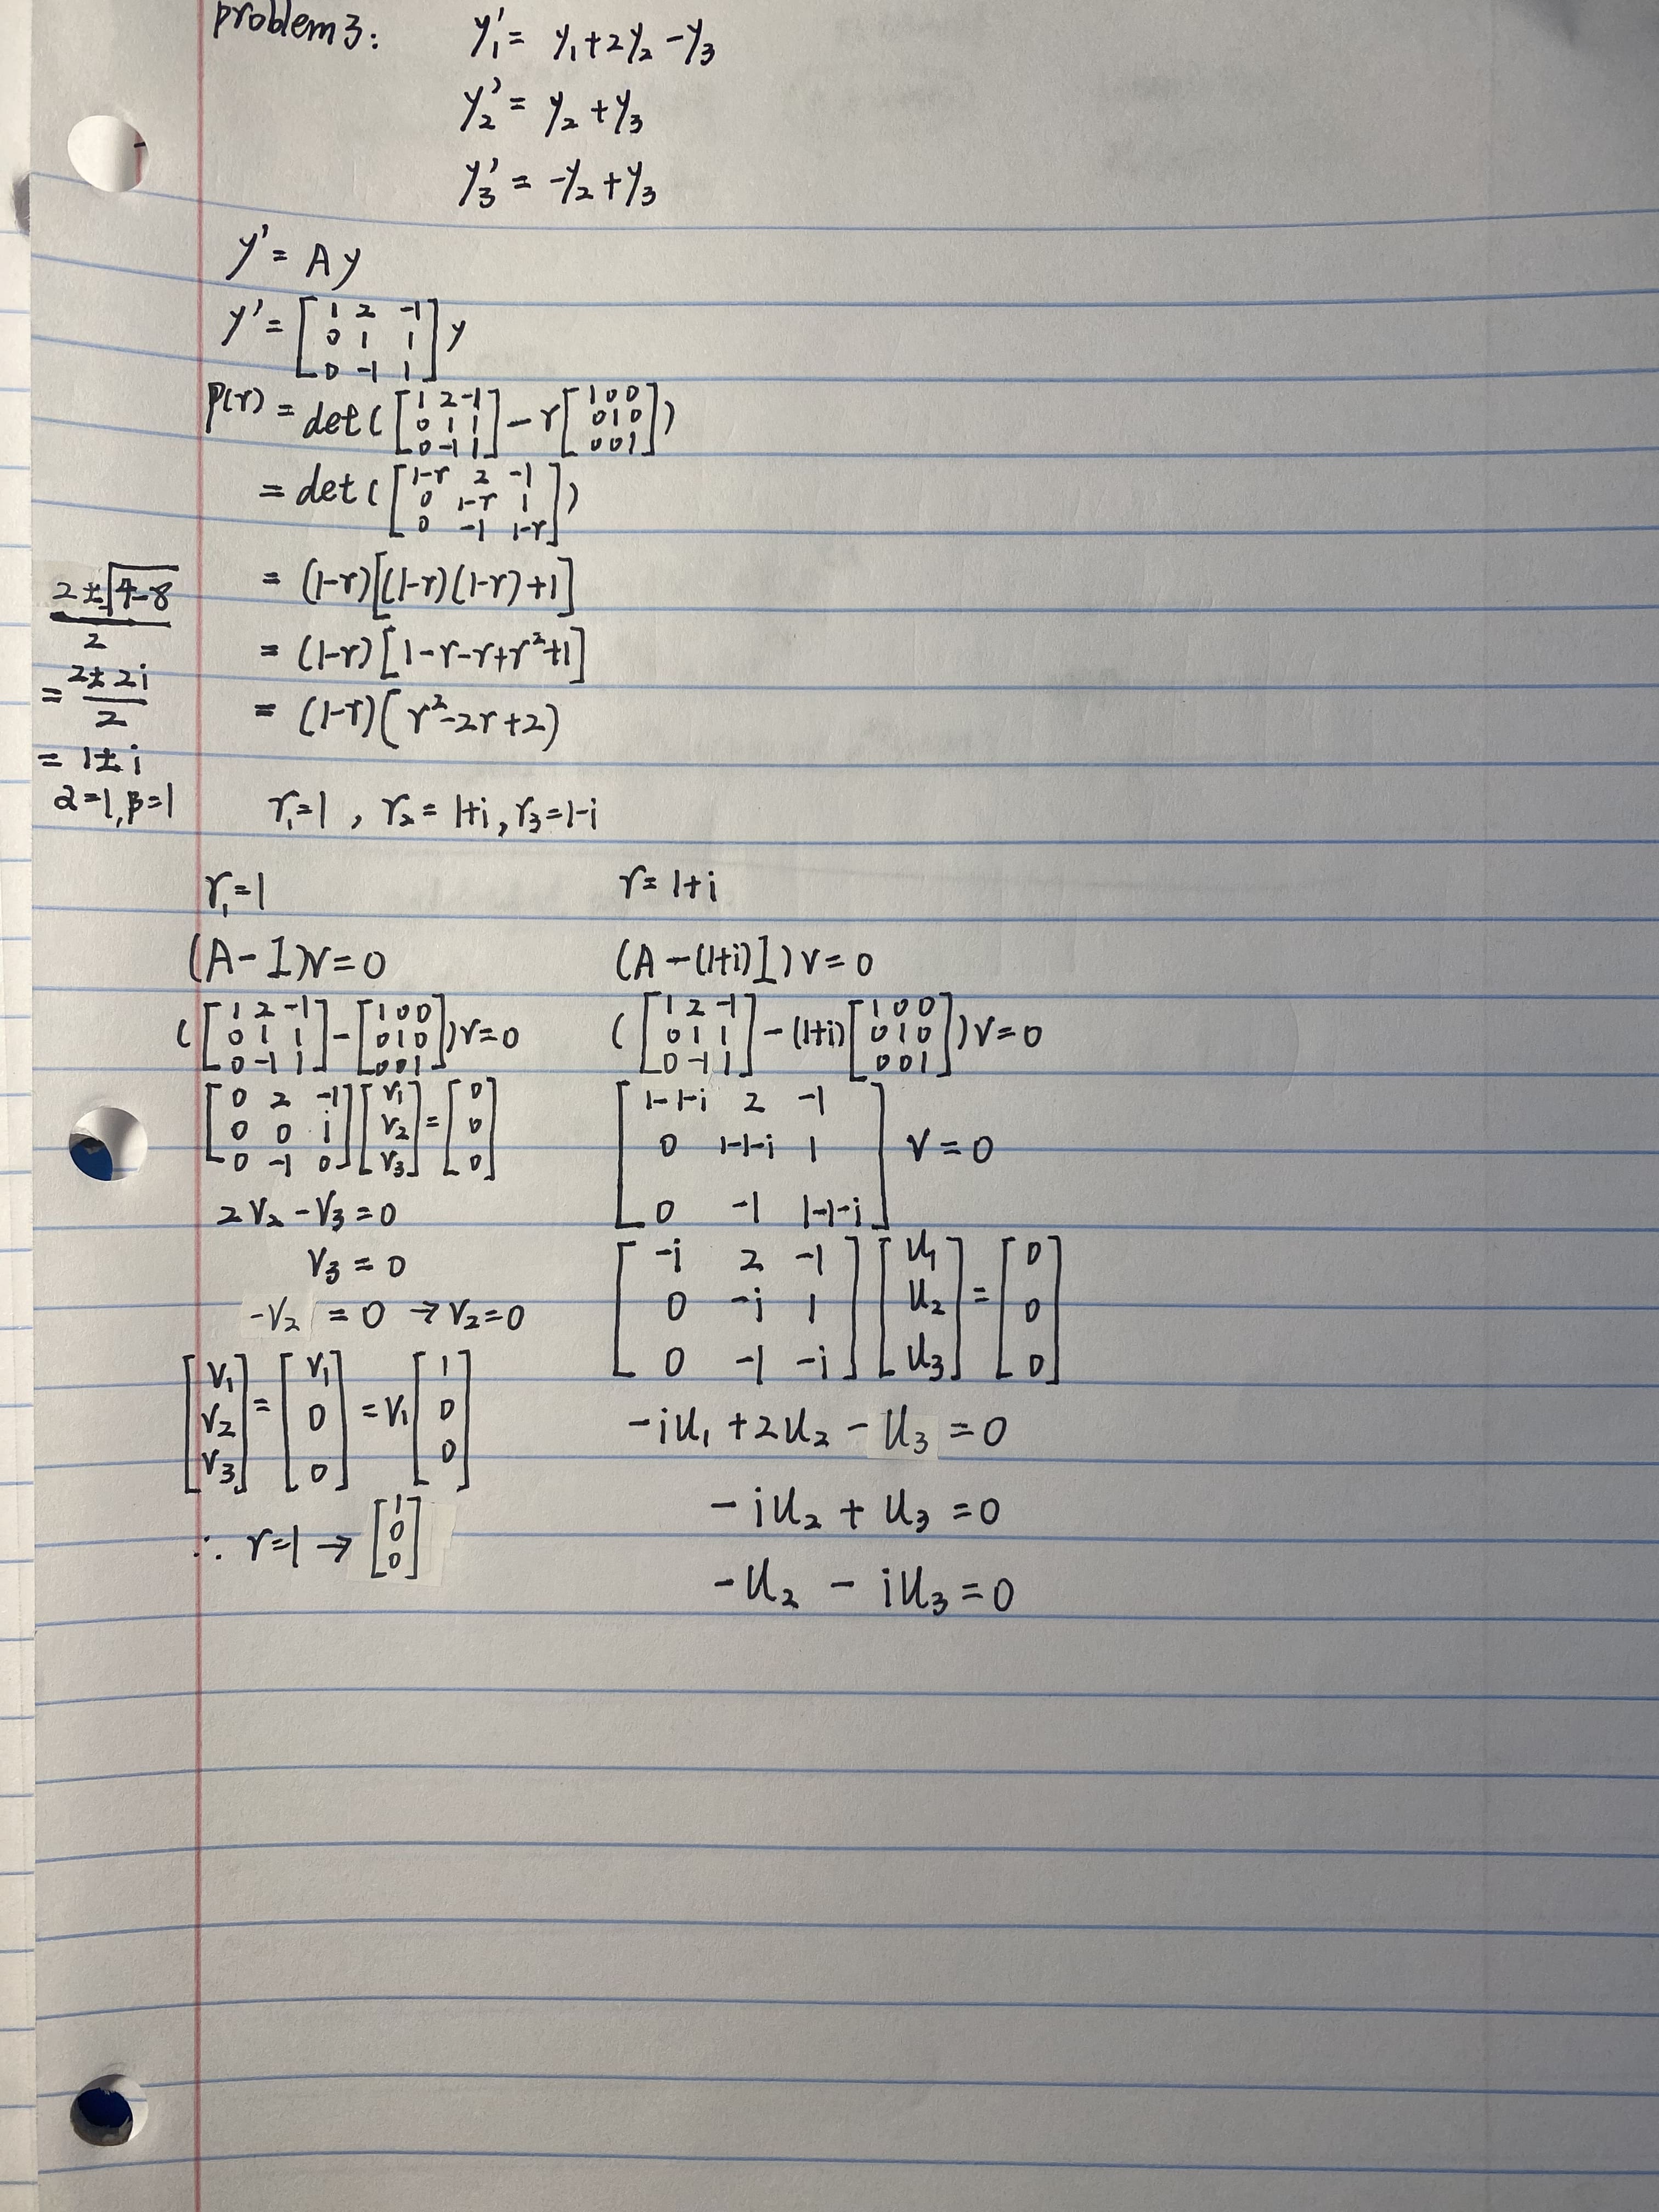 problem 3: y₁' = y₁ + 2y₂ - y₃
y₂' = y₂ + y₃
y₃' = -y₂ + y₃
y' = Ay
y' = [1 2 -1; 0 1 1; 0 -1 1] y
p(r) = det([1 2 -1; 0 1 1; 0 -1 1] - r[1 0 0; 0 1 0; 0 0 1])
= det([1-r 2 -1; 0 1-r 1; 0 -1 1-r])
= (1-r)[(1-r)(1-r)+1]
= (1-r)[1-r-r+r²+1]
= (1-r)(r²-2r+2)
(2±√(4-8))/2
= (2±2i)/2
= 1±i
α=1, β=1
r₁=1, r₂=1+i, r₃=1-i
r₁=1
(A-I)v=0
([1 2 -1; 0 1 1; 0 -1 1] - [1 0 0; 0 1 0; 0 0 1])v=0
[0 2 -1; 0 0 i; 0 -1 0][v₁; v₂; v₃] = [0; 0; 0]
2v₂ - v₃ = 0
v₃ = 0
-v₂ = 0 → v₂=0
[v₁; v₂; v₃] = [v₁; 0; 0] = v₁[1; 0; 0]
∴ r=1 → [1; 0; 0]
r=1+i
(A-(1+i)I)v=0
([1 2 -1; 0 1 1; 0 -1 1] - (1+i)[1 0 0; 0 1 0; 0 0 1])v=0
[1-1-i 2 -1; 0 1-1-i 1; 0 -1 1-1-i] v=0
[-i 2 -1; 0 -i 1; 0 -1 -i][u₁; u₂; u₃] = [0; 0; 0]
-iu₁ + 2u₂ - u₃ = 0
-iu₂ + u₃ = 0
-u₂ - iu₃ = 0